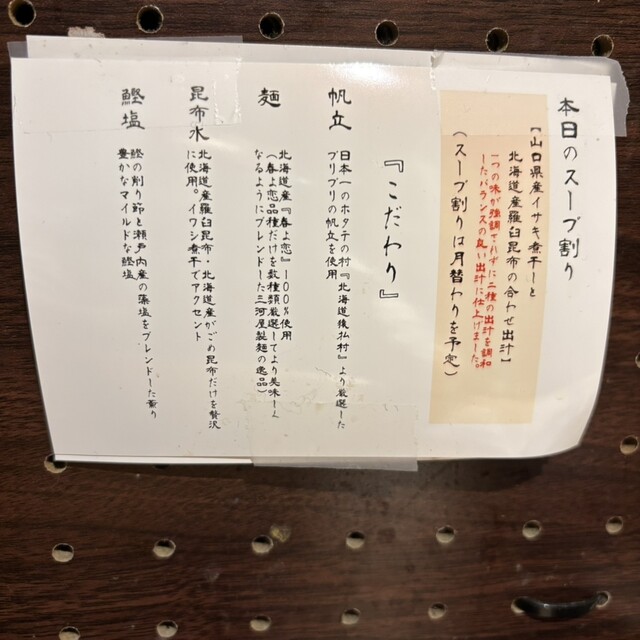 本日のスープ割り
【山口県産イサキ煮干しと
北海道産羅臼昆布の合わせ出汁】
一つの味が強調されずに二種の出汁を調和
したバランスの良い出汁に仕上げました
(スープ割りは月替わりを予定)
『こだわり』
帆立
日本一のホタテの村『北海道猿払村』より厳選した
プリプリの帆立を使用
麺
北海道産『春よ恋』100%使用
(春よ恋品種だけを数種類厳選してより美味しく
なるようにブレンドした三河屋製麺の逸品)
昆布水
北海道産羅臼昆布・北海道産がごめ昆布だけを贅沢
に使用。イワシ煮干でアクセント
鰹塩
鰹の削り節と瀬戸内産の藻塩をブレンドした香り
豊かなマイルドな鰹塩